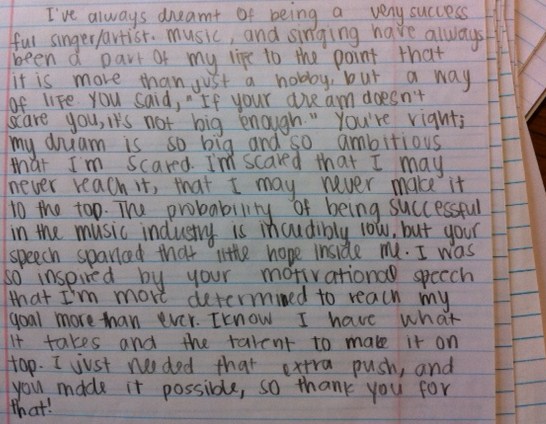 I've always dreamt of being a very success
ful singer/artist. Music, and singing have always
been a part of my life to the point that
it is more than just a hobby, but a way
of life. You said, "If your dream doesn't
scare you, it's not big enough." You're right;
my dream is so big and so ambitious
that I'm scared. I'm scared that I may
never reach it, that I may never make it
to the top. The probability of being successful
in the music industry is incredibly low, but your
speech sparked that little hope inside me. I was
so inspired by your motivational speech
that I'm more determined to reach my
goal more than ever. I know I have what
it takes and the talent to make it on
top. I just needed that extra push, and
you made it possible, so thank you for
that!